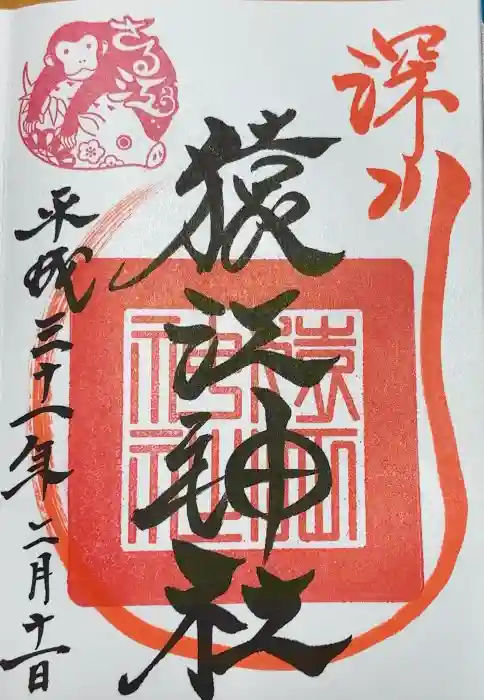 深川
猿江神社
猿江
神社
さる江
平成三十一年二月十一日